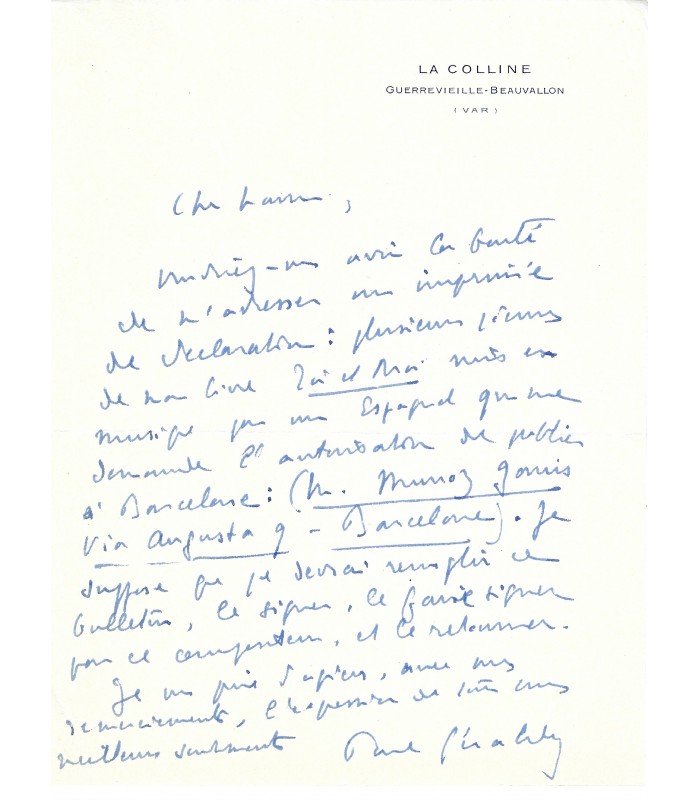 LA COLLINE
GUERREVIEILLE-BEAUVALLON
(VAR)
Cher
Voudriez-vous avoir la bonté
de m'adresser un imprimé
de déclaration : plusieurs poèmes
de mon livre Toi et Moi mis en
musique par un Espagnol qui me
demande l'autorisation de publier
à Barcelone : (M. Munoz Gomis
Via Augusta 9 - Barcelone). Je
suppose que je devrai remplir ce
bulletin, le signer, le faire signer
par ce compositeur, et le retourner.
Je vous prie d'agréer, avec mes
remerciements, l'expression de tous mes
meilleurs sentiments Paul Géraldy